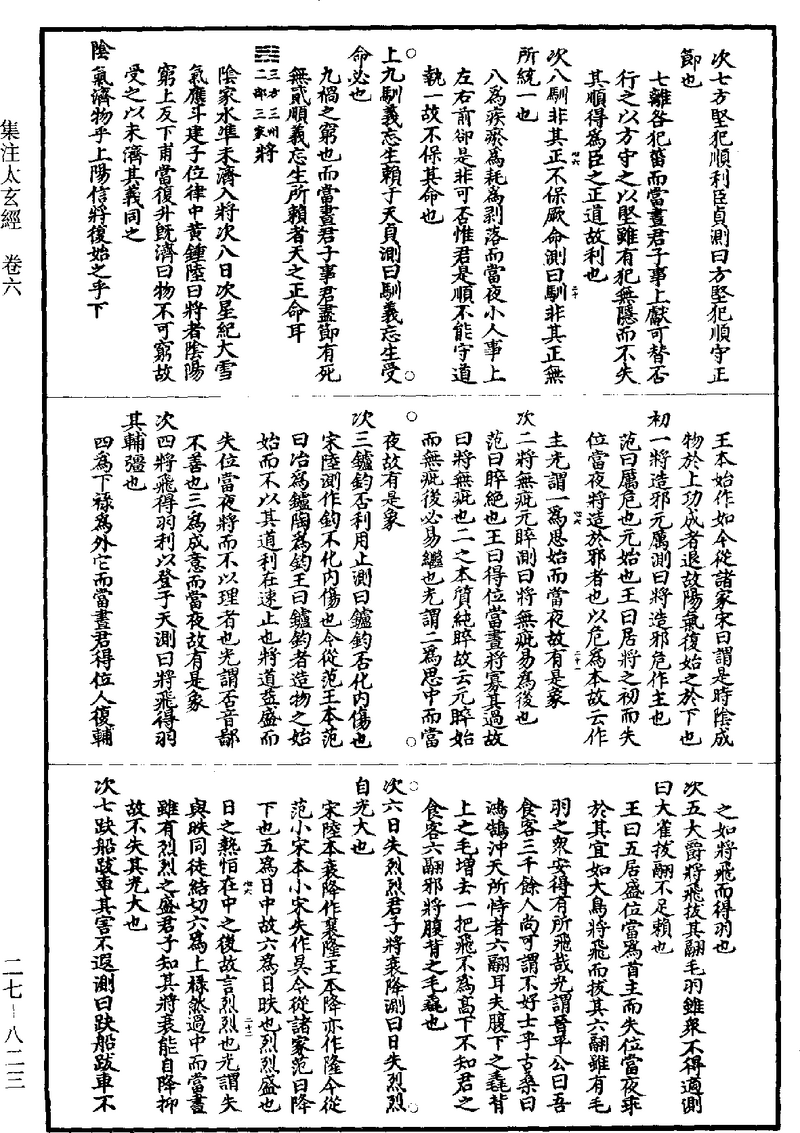 次七方堅犯順利臣貞測曰方堅犯順守正
節也
七離咎犯菑而當晝君子事上獻可替否
行之以方守之以堅雖有犯無隱而不失
其順得爲臣之正道故利也
次八馴非其正不保厥命測曰馴非其正無
所統一也
八爲疾瘀爲耗爲剥落而當夜小人事上
左右前卻是非可否惟君是順不能守道
執一故不保其命也
上九馴義忘生賴于天貞測曰馴義忘生受
命必也
九禍之窮也而當晝君子事君盡節有死
無貳順義忘生所賴者天之正命耳
三方三州二部三家將
陰家水準未濟入將次八日次星紀大雪
氣應斗建子位律中黄鍾陸曰將者陰陽
窮上反下甫當復升既濟曰物不可窮故
受之以未濟其義同之
陰氣濟物乎上陽信將復始之乎下
王本始作如今從諸家宋曰謂是時陰成
物於上功成者退故陽氣復始之於下也
初一將造邪元厲測曰將造邪危作主也
范曰厲危也元始也王曰居將之初而失
位當夜將造於邪者也以危爲本故云作
主光謂一爲思始而當夜故有是象
次二將無疵元睟測曰將無疵易爲後也
范曰睟絶也王曰得位當晝將寡其過故
曰將無疵也二之本質純睟故云元睟始
而無疵後必易繼也光謂二爲思中而當
夜故有是象
次三鑪鈞否利用止測曰鑪鈞否化内傷也
宋陸測作鈞不化内傷也今從范王本范
曰冶爲鑪陶爲鈞王曰鑪鈞者造物之始
始而不以其道利在速止也將道益盛而
失位當夜將而不以理者也光謂否音鄙
不善也三爲成意而當夜故有是象
次四將飛得羽利以登于天測曰將飛得羽
其輔彊也
四爲下禄爲外它而當晝君得位人復輔
之如將飛而得羽也
次五大爵將飛拔其翮毛羽雖衆不得適測
曰大雀拔翮不足賴也
王曰五居盛位當爲首主而失位當夜乖
於其宜如大鳥將飛而拔其六翮雖有毛
羽之衆安得有所飛哉光謂晋平公曰吾
食客三千餘人尚可謂不好士乎古桑曰
鴻鵠沖天所恃者六翮耳夫腹下之毳背
上之毛增去一把飛不爲高下不知君之
食客六翮邪將腹背之毛毳也
次六日失烈烈君子將衰降測曰日失烈烈
自光大也
宋陸本衰降作襄隆王本降亦作隆今從
范小宋本小宋失作昃今從諸家范曰降
下也五爲日中故六爲日昳也烈烈盛也
日之熱恒在中之後故言烈烈也光謂失
與昳同徒結切六爲上禄然過中而當晝
雖有烈烈之盛君子知其將衰能自降抑
故不失其光大也
次七趹船跋車其害不遐測曰趹船跋車不
集注太玄經 卷六
二七—八二三